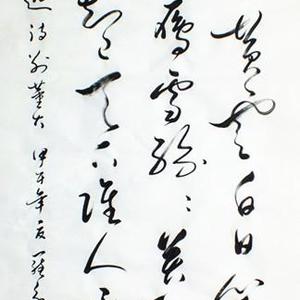 黄雲白日
雁雪紛紛莫
己天下誰人不
適詩別董大 甲午年夏 羅